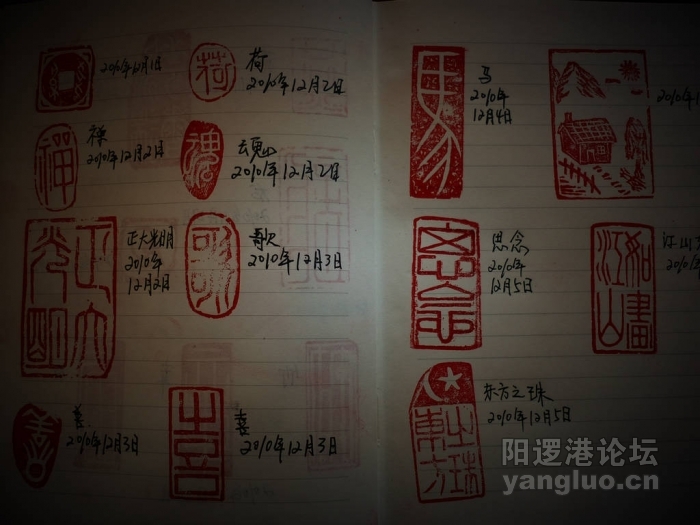 2010年12月1日
荷
荷
2010年12月2日
禪
禅
2010年12月2日
魂
魂
2010年12月2日
正大
光明
正大光明
2010年
12月2日
歌
歌
2010年12月3日
善
善
2010年12月3日
喜
喜
2010年12月3日
馬
马
2010年
12月4日
2010年1
思念
思念
2010年
12月5日
如畫
江山
江山
2010年
之珠
東方
东方之珠
2010年12月5日
阳逻港论坛
yangluo.cn